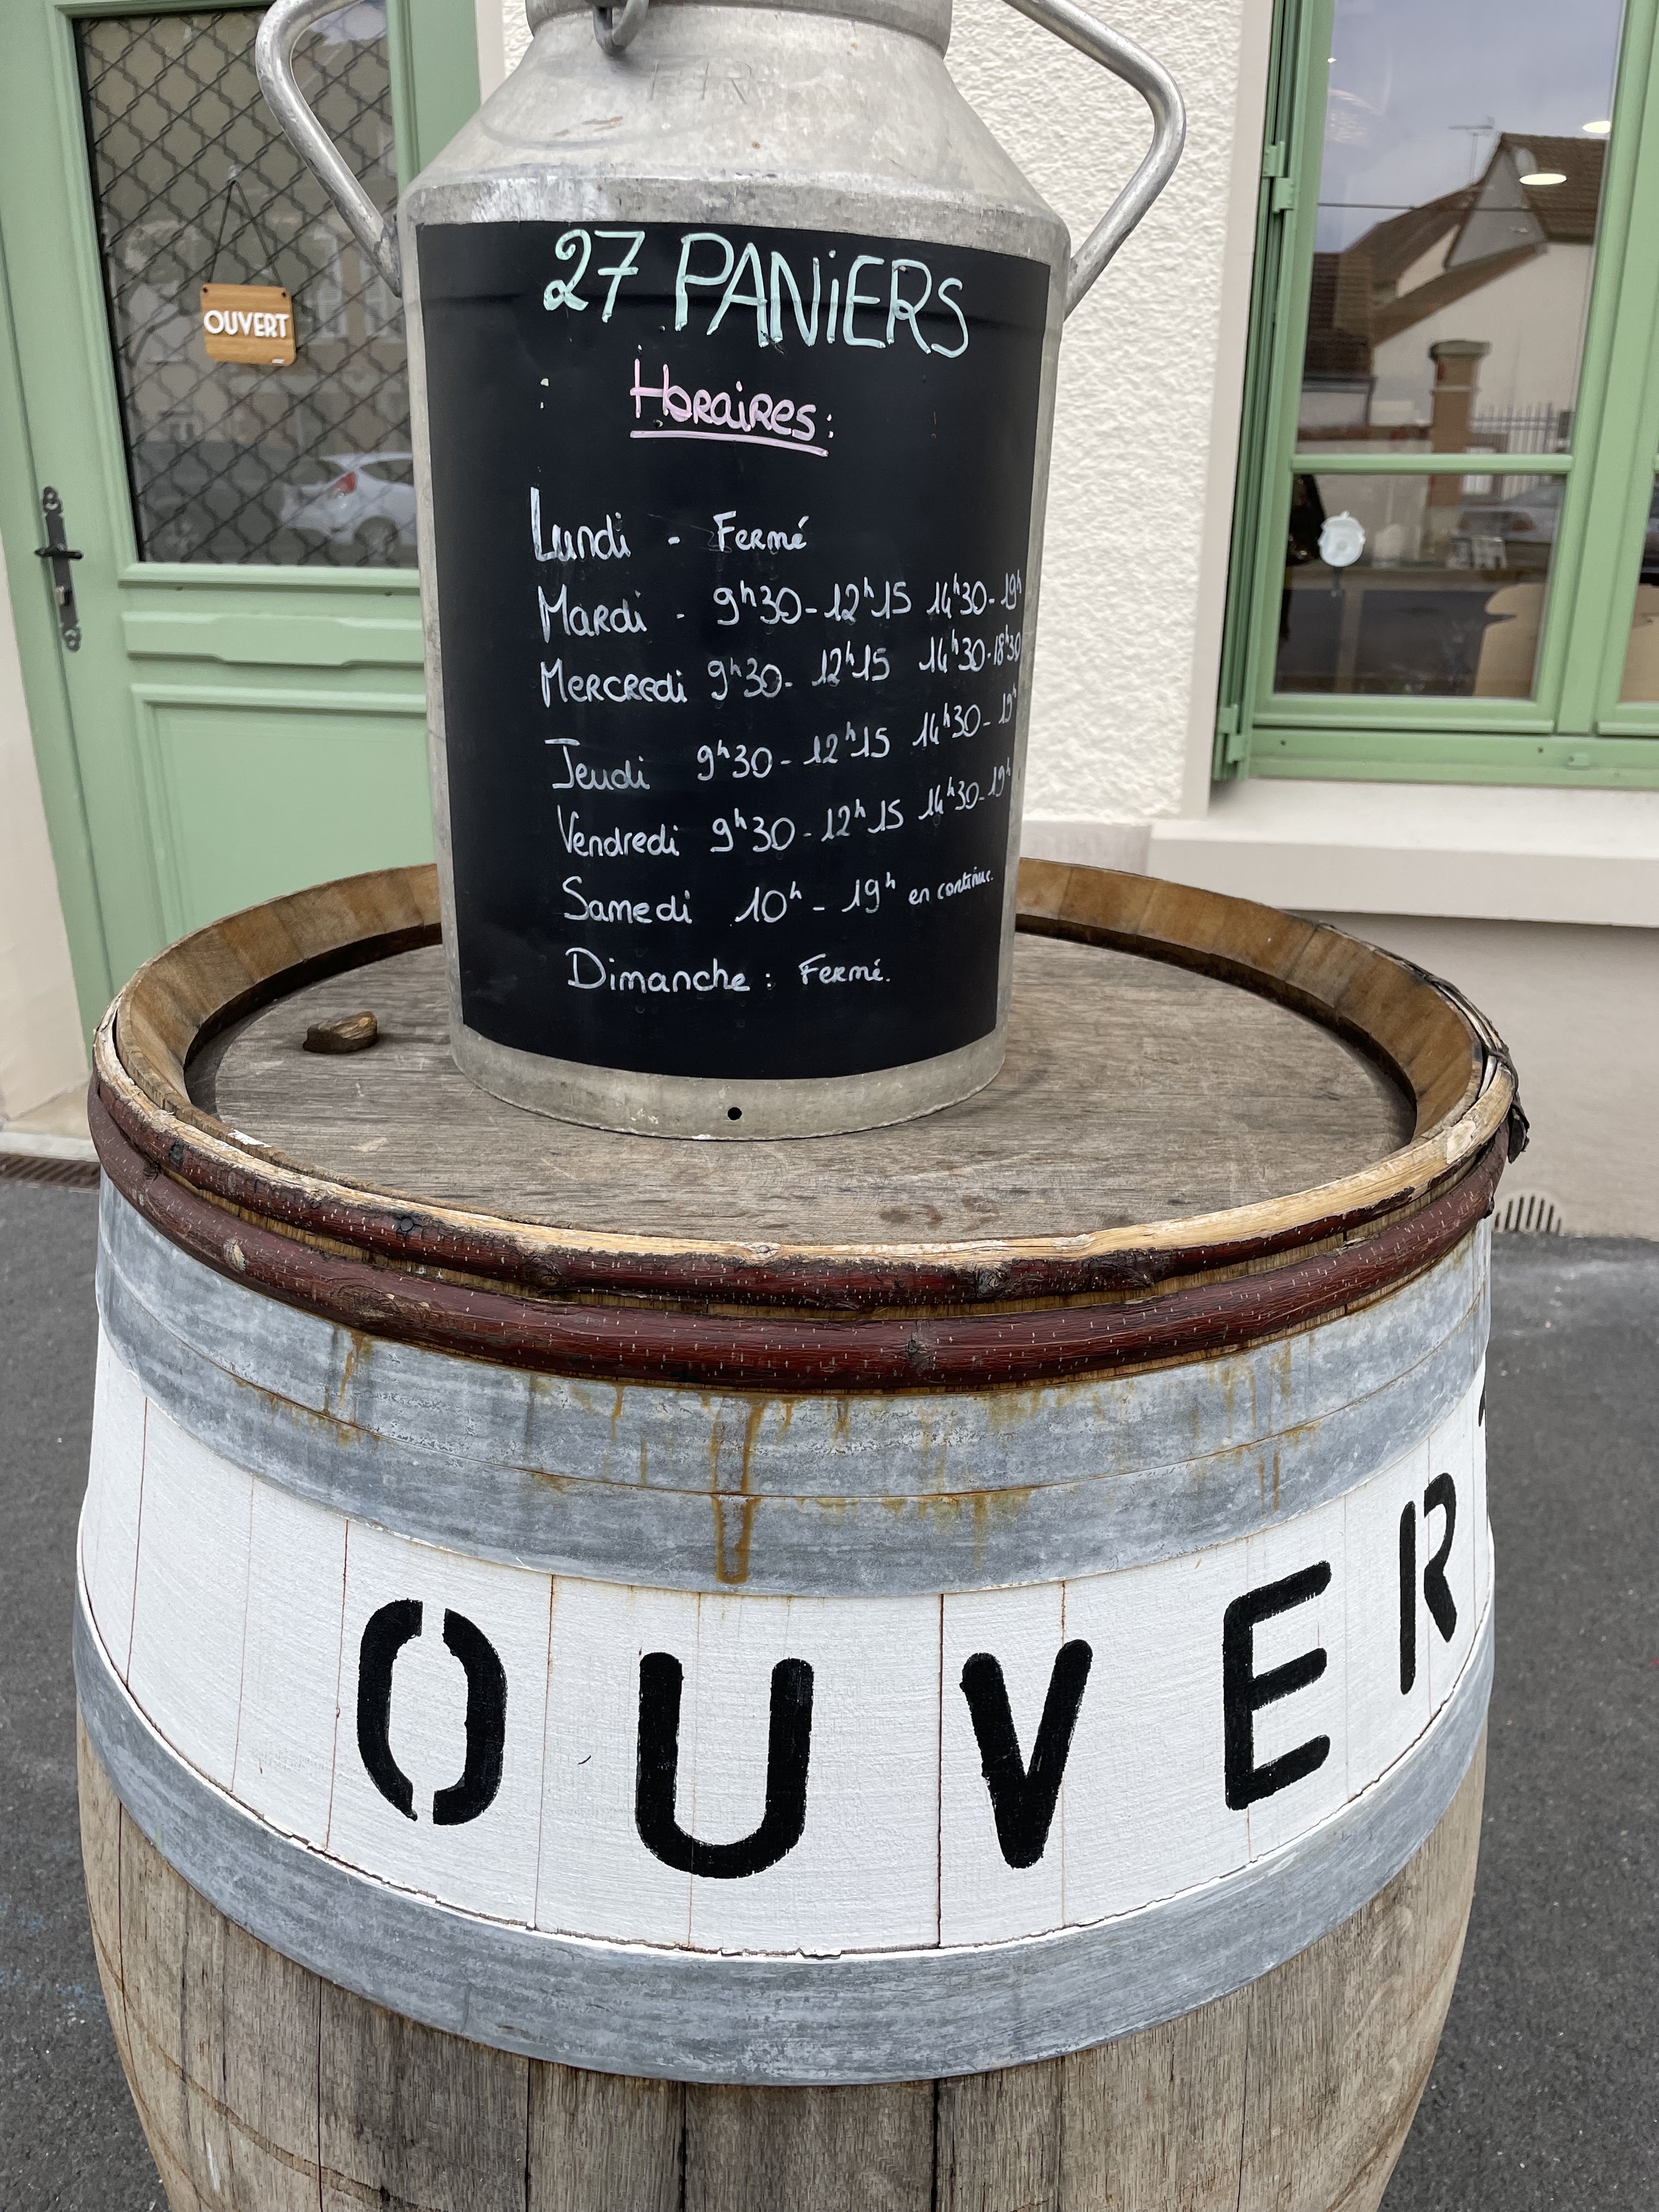 FR
27 PANiERS
OUVERT
Horaires:
Lundi - Fermé
Mardi - 9h30-12h15 14h30-19h
Mercredi 9h30- 12h15 14h30-18h30
Jeudi 9h30-12h15 14h30-19h
Vendredi 9h30-12h15 14h30-19h
Samedi 10h-19h en continu.
Dimanche : Fermé.
OUVER